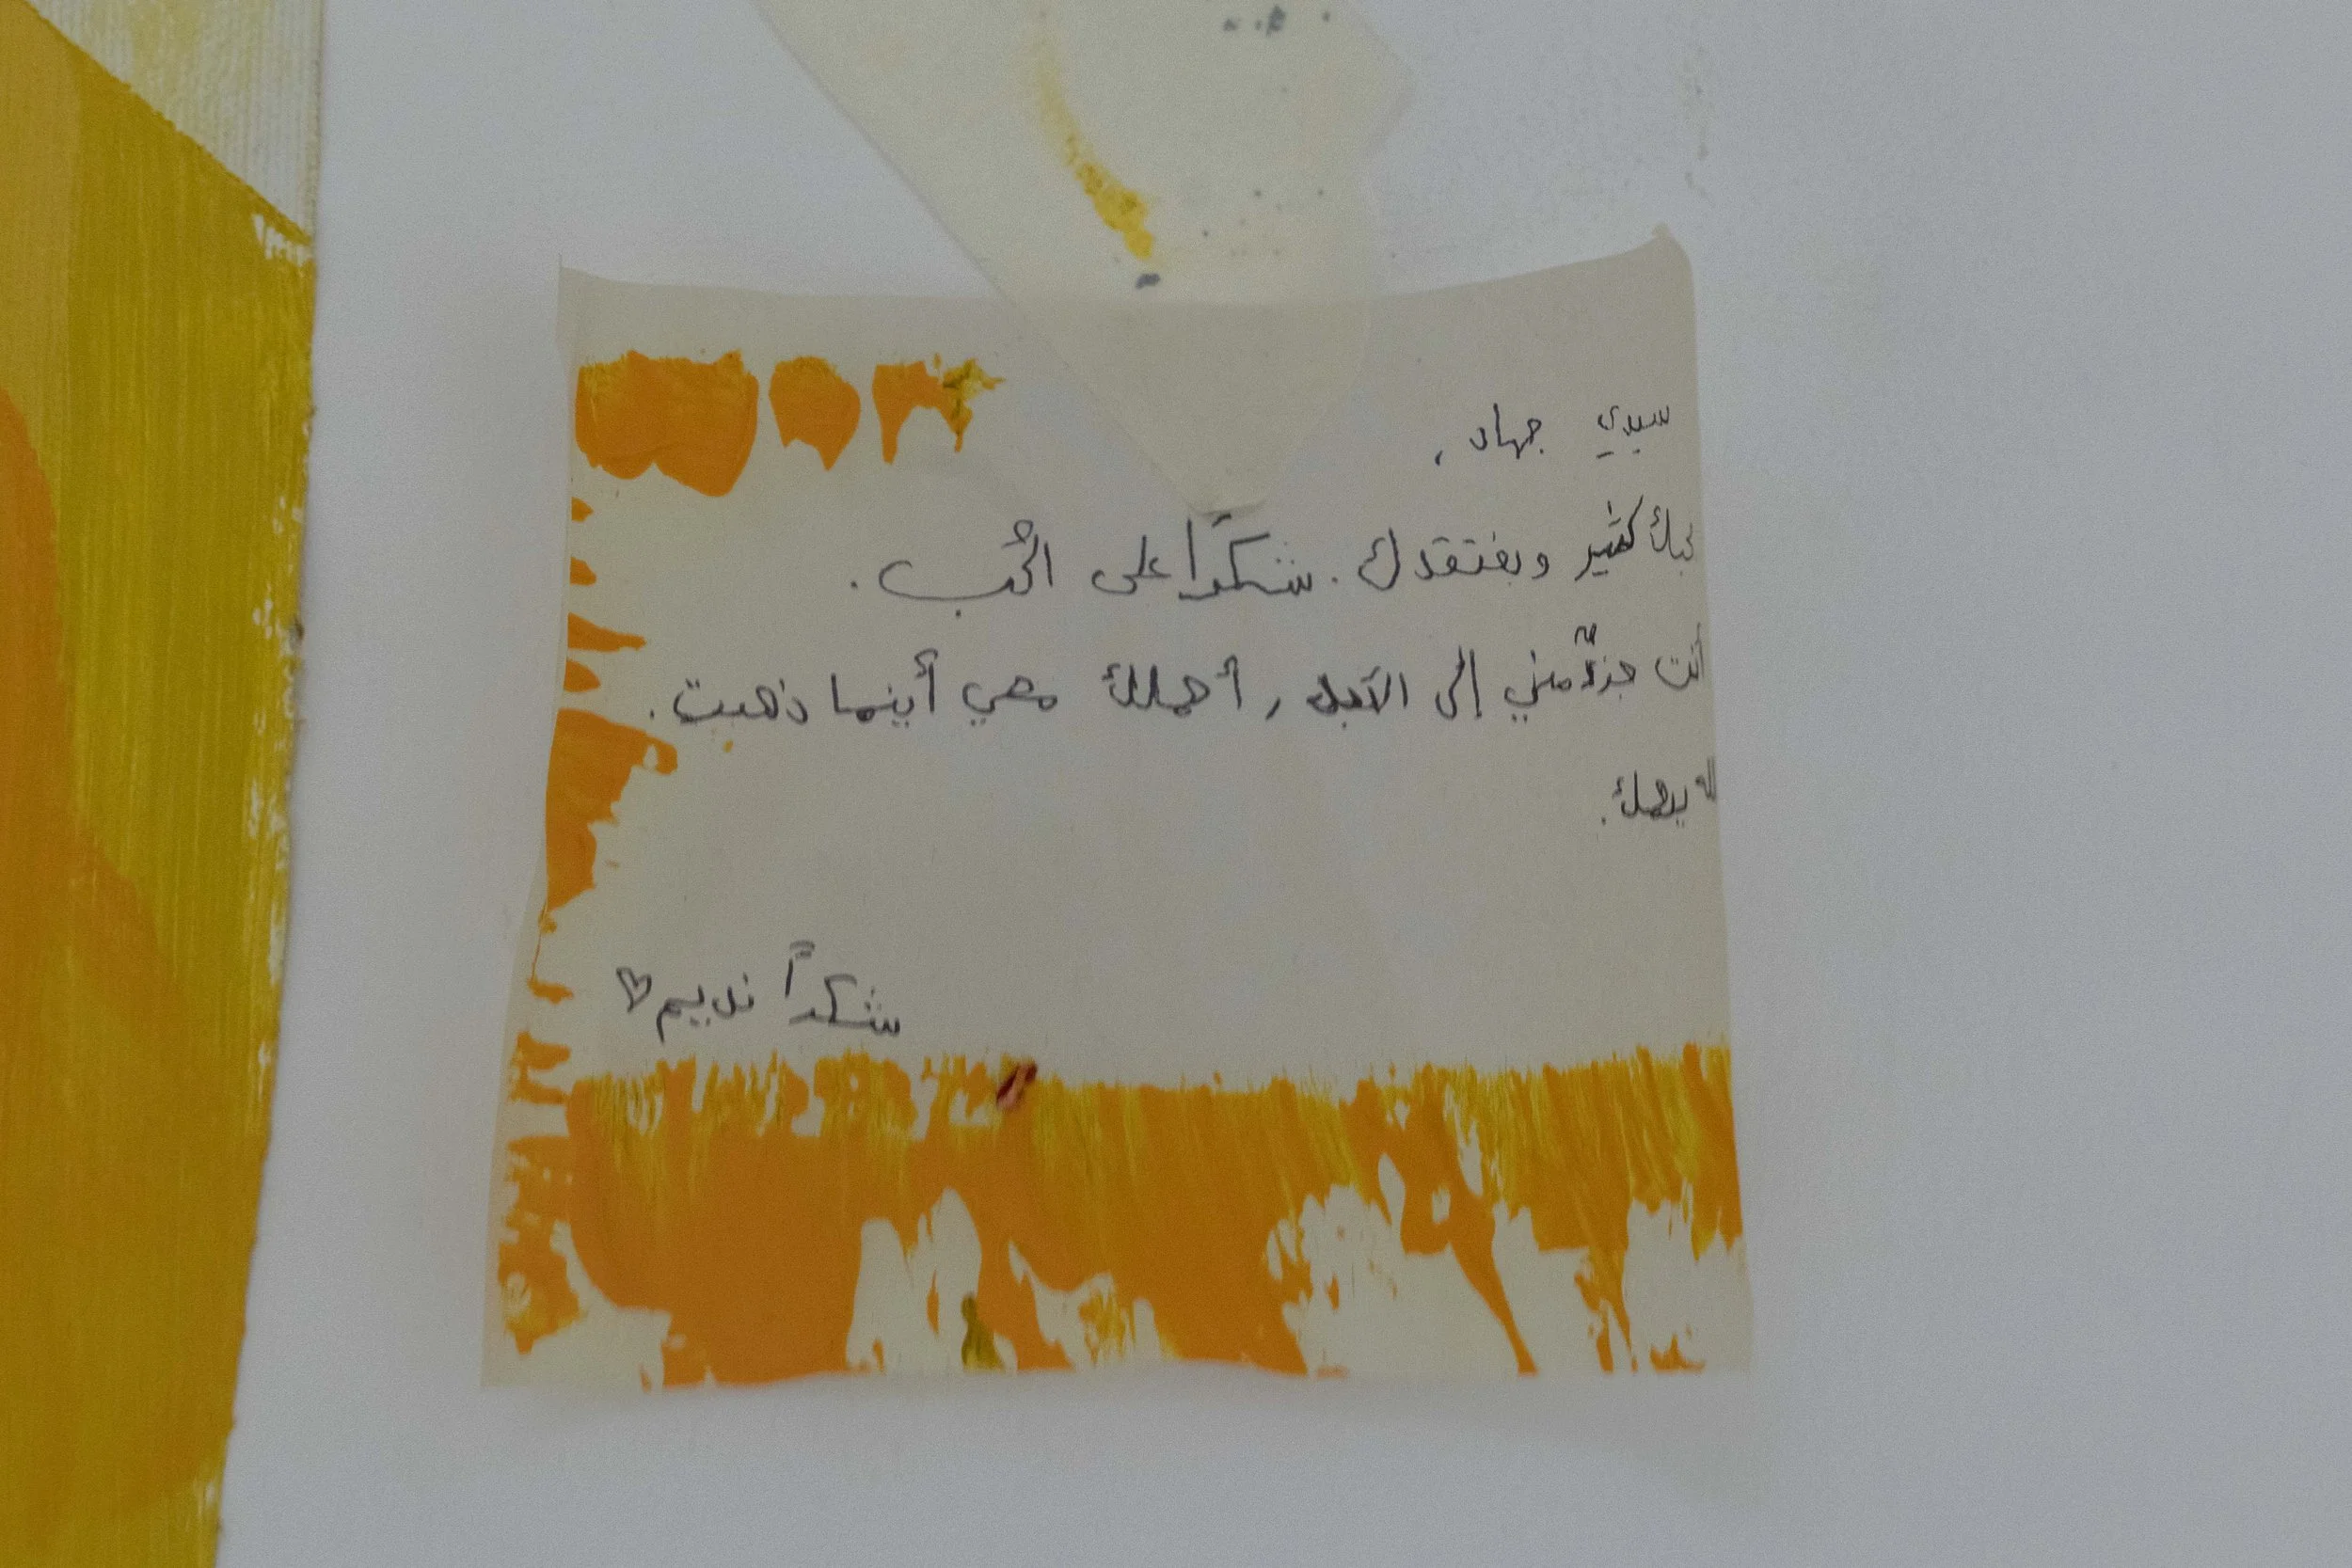 سيدي جهاد,
بحبك كثير وبفتقدك. شكرًا على الحُب.
أنت جزءٌ مني إلى الأبد, أحملك معي أينما ذهبت.
الله يرحمك.
شكراً نديم♡